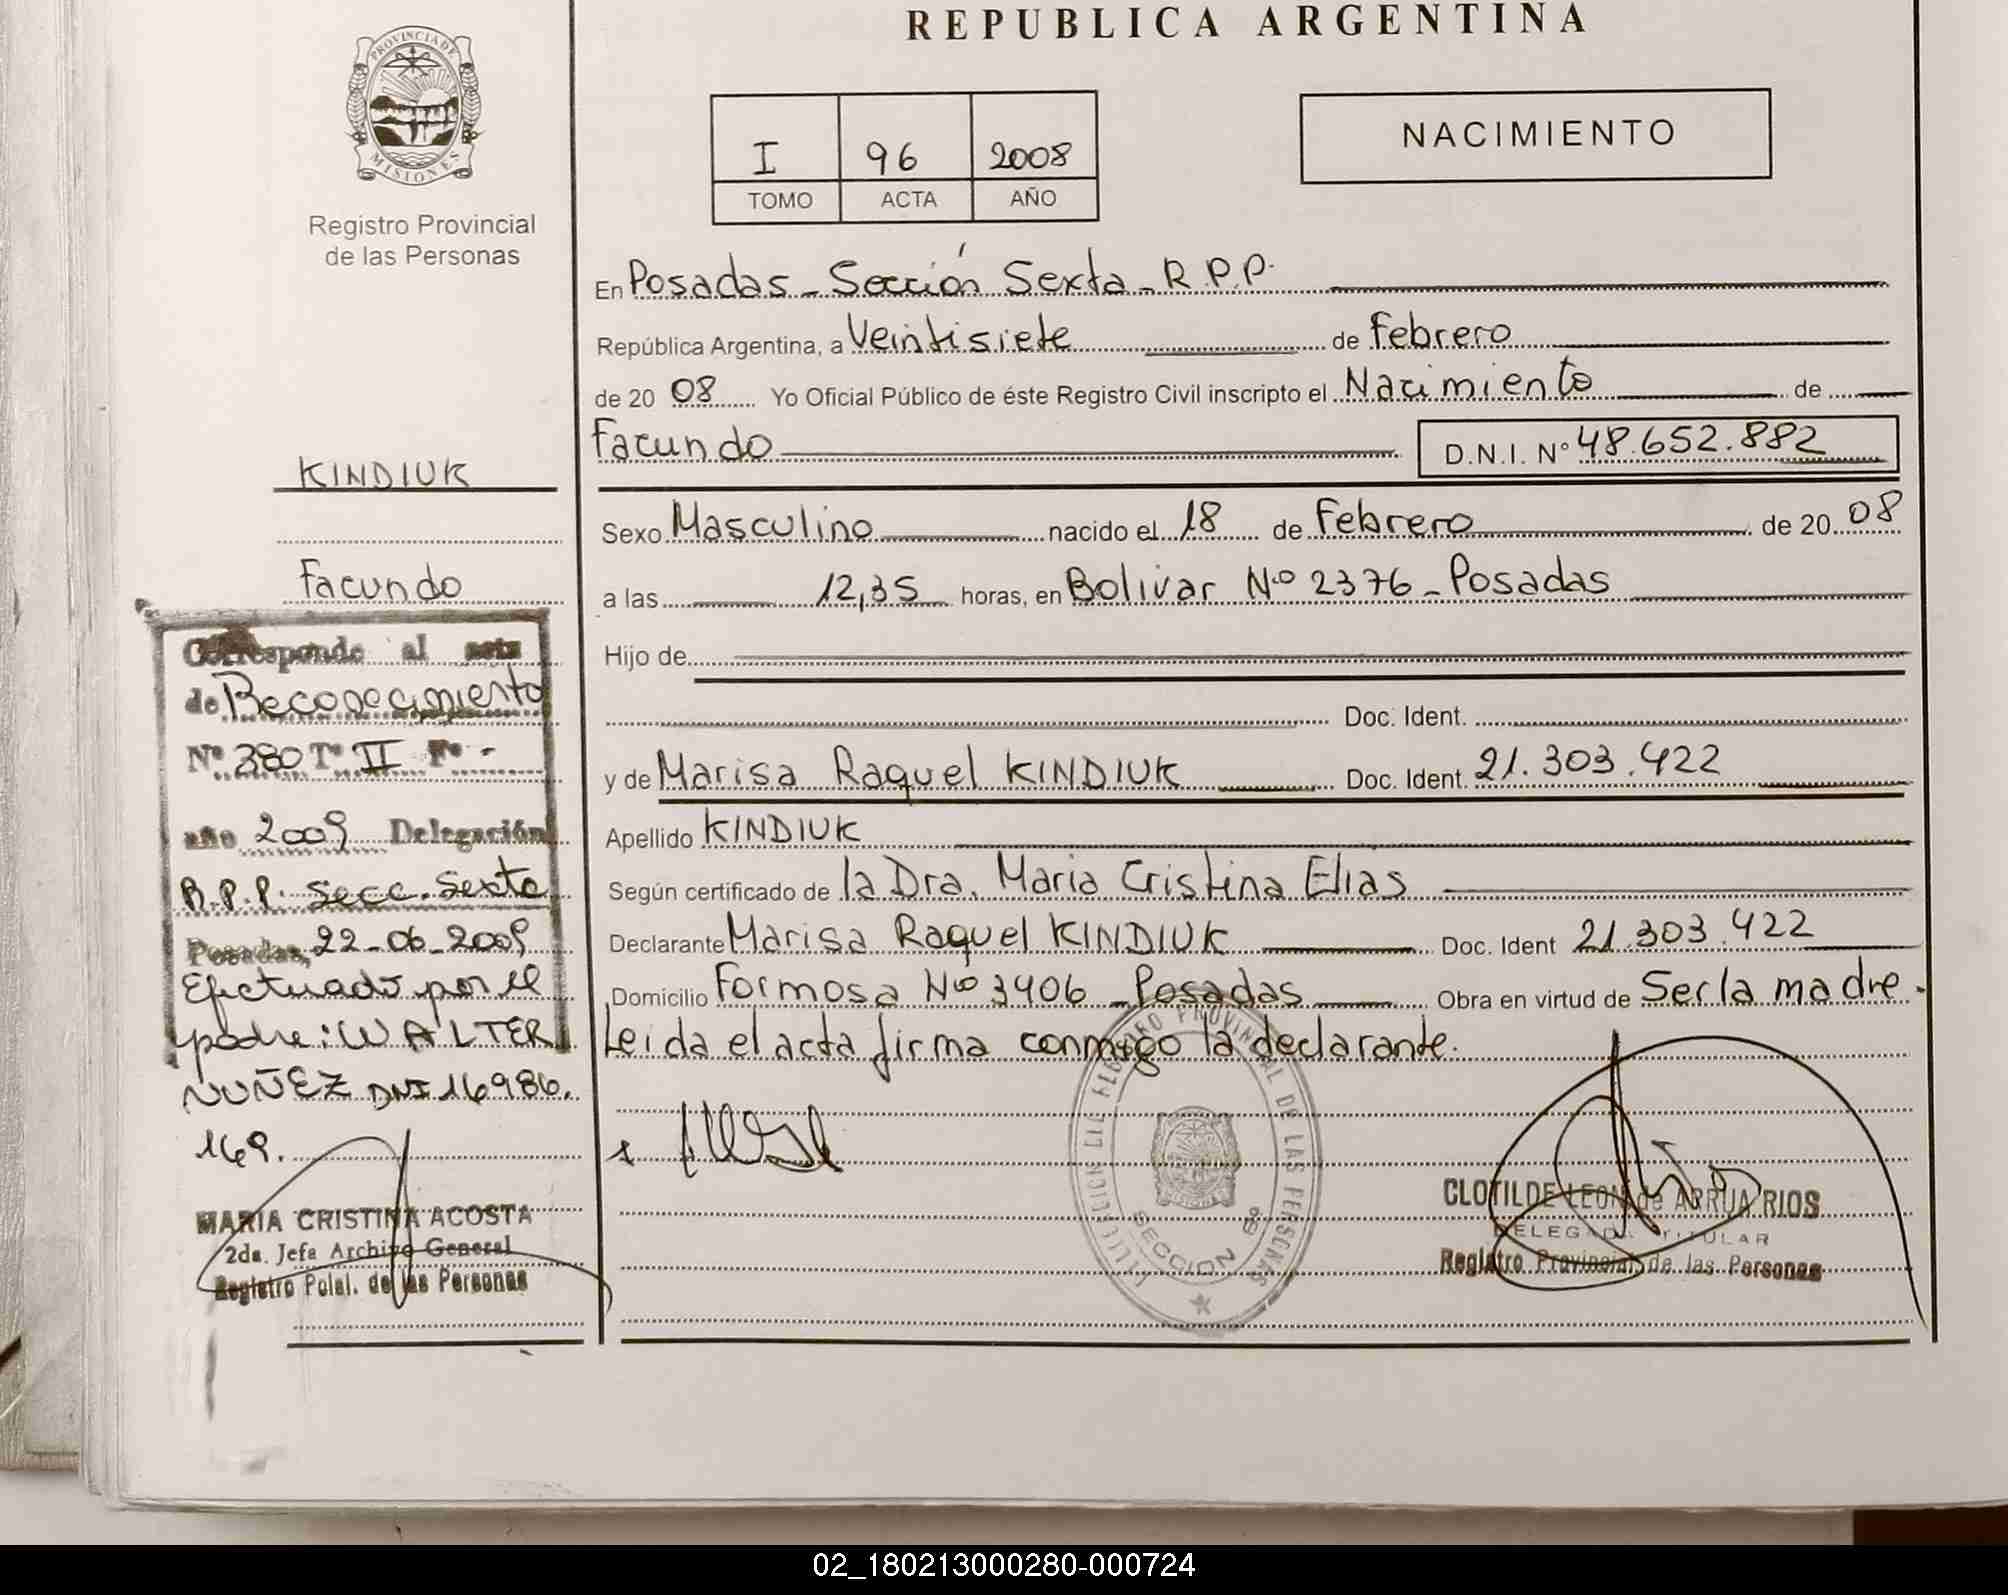 REPUBLICA ARGENTINA
PROVINCIA DE
MISIONES
Registro Provincial
de las Personas
I 96 2008
TOMO ACTA AÑO
NACIMIENTO
En Posadas - Sección Sexta - R.P.P.
República Argentina, a Veintisiete de Febrero
de 20 08 Yo Oficial Público de éste Registro Civil inscripto el Nacimiento de
Facundo D.N.I. Nº 48.652.882
Sexo Masculino nacido el 18 de Febrero de 20 08
a las 12,35 horas, en Bolivar Nº 2376 - Posadas
Hijo de
Doc. Ident.
y de Marisa Raquel KINDIUK Doc. Ident. 21.303.422
Apellido KINDIUK
Según certificado de la Dra. Maria Cristina Elias
Declarante Marisa Raquel KINDIUK Doc. Ident 21.303.422
Domicilio Formosa Nº 3406 - Posadas Obra en virtud de Ser la madre.
Leida el acta firma conmigo la declarante.
REGISTRO PROVINCIAL DE LAS PERSONAS
SECCION 6º
CLOTILDE LEON de ARRUA RIOS
DELEGADA TITULAR
Registro Provincial de las Personas
KINDIUK
Facundo
Corresponde al acta
de Reconocimiento
Nº 380 Tº II Fº -
año 2009 Delegación
R.P.P. Secc. Sexta
Posadas, 22-06-2009
Efectuado por el
padre: WALTER
NUÑEZ DNI 16986.
169.
MARIA CRISTINA ACOSTA
2da. Jefa Archivo General
Registro Pcial. de las Personas
02_180213000280-000724